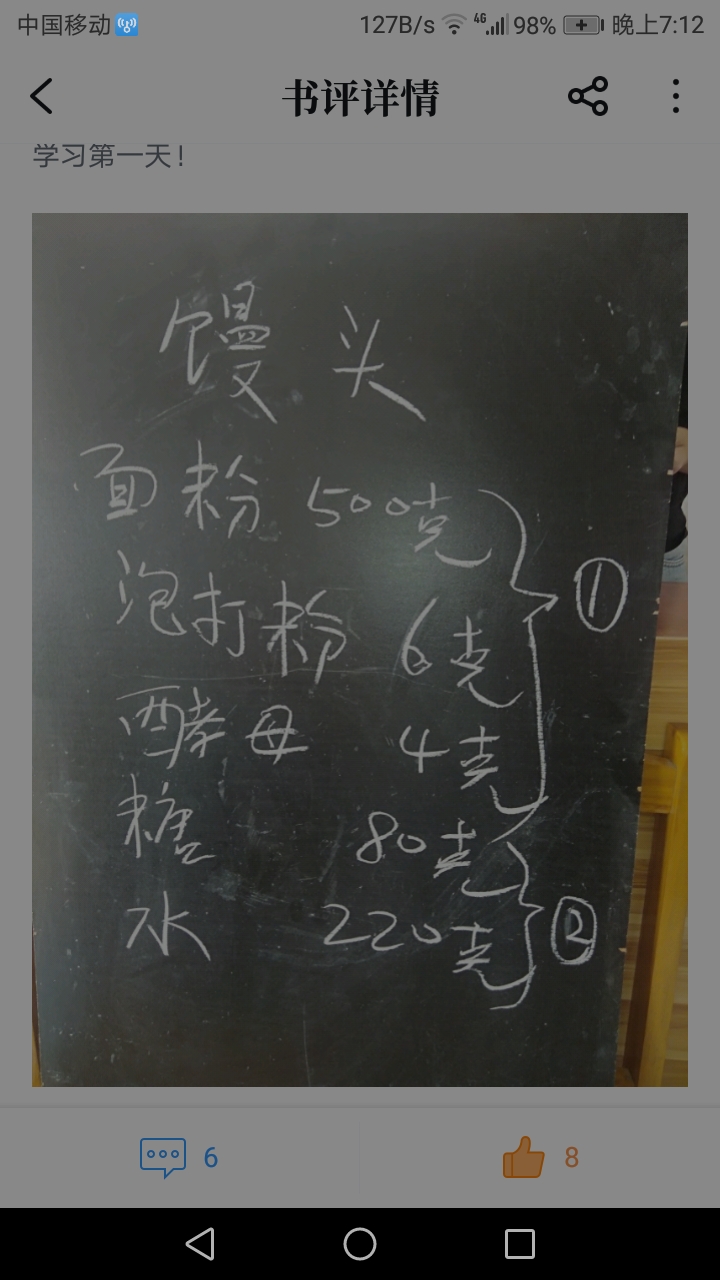 中国移动 127B/s 4G 98% 晚上7:12
书评详情
学习第一天!
馒头
面粉 500克
泡打粉 6克 ①
酵母 4克
糖 80克
水 220克 ②
6 8